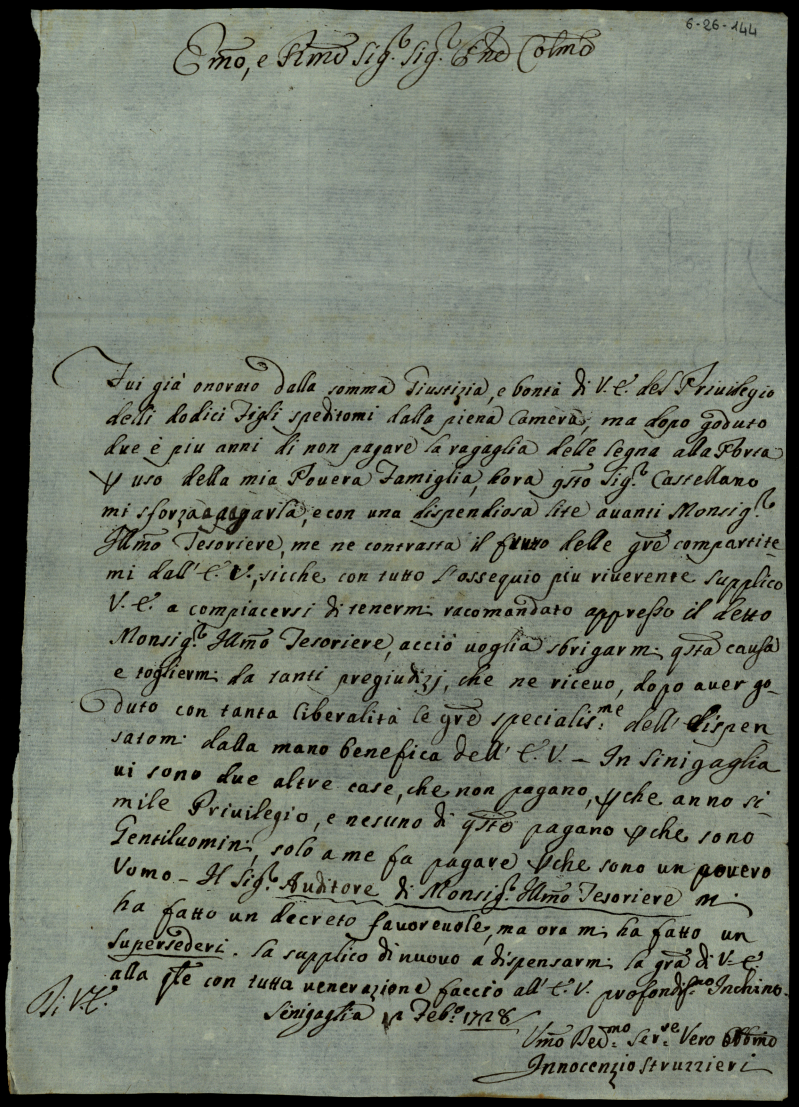 6-26-144
Emo, e Rmo Sig.r Sig.r Pne Colmo
Fui già onorato dalla somma Giustizia, e bontà di V.E. del Privilegio
delli dodici Figli speditomi dalla piena Camera, ma dopo goduto
due è piu anni di non pagare la ragaglia delle legna alla Porta
p uso della mia Povera Famiglia, hora qsto Sig.r Castellano
mi sforza a pagarla, e con una dispendiosa lite avanti Monsig.r
Illmo Tesoriere, me ne contrasta il frutto delle gre compartite-
mi dall' E.V., sicche con tutto l'ossequio piu riverente supplico
V.E. a compiacersi di tenermi racomandato appresso il detto
Monsig.r Illmo Tesoriere, acciò voglia sbrigarmi qsta causa
e togliermi da tanti pregiudizj, che ne ricevo, dopo aver go-
duto con tanta liberalità le gre specialis.me dell' dispen
satomi dalla mano benefica dell' E.V. – In Sinigaglia
vi sono due altre case, che non pagano, pche anno si-
mile Privilegio, e nesuno di qsto pagano pche sono
Gentiluomini, solo a me fa pagare pche sono un povero
Uomo – Il Sig.r Auditore di Monsig.r Illmo Tesoriere mi
ha fatto un decreto favorevole, ma ora mi ha fatto un
supersederi. la supplico di nuovo a dispensarmi la gra di V.E.
alla qle con tutta venerazione faccio all' E.V. profondis.mo Inchino.
Di V.E.
Sinigaglia Feb.o 1728
Umo Dev.mo Ser.re Vero Obbmo
Innocenzio Struzzieri